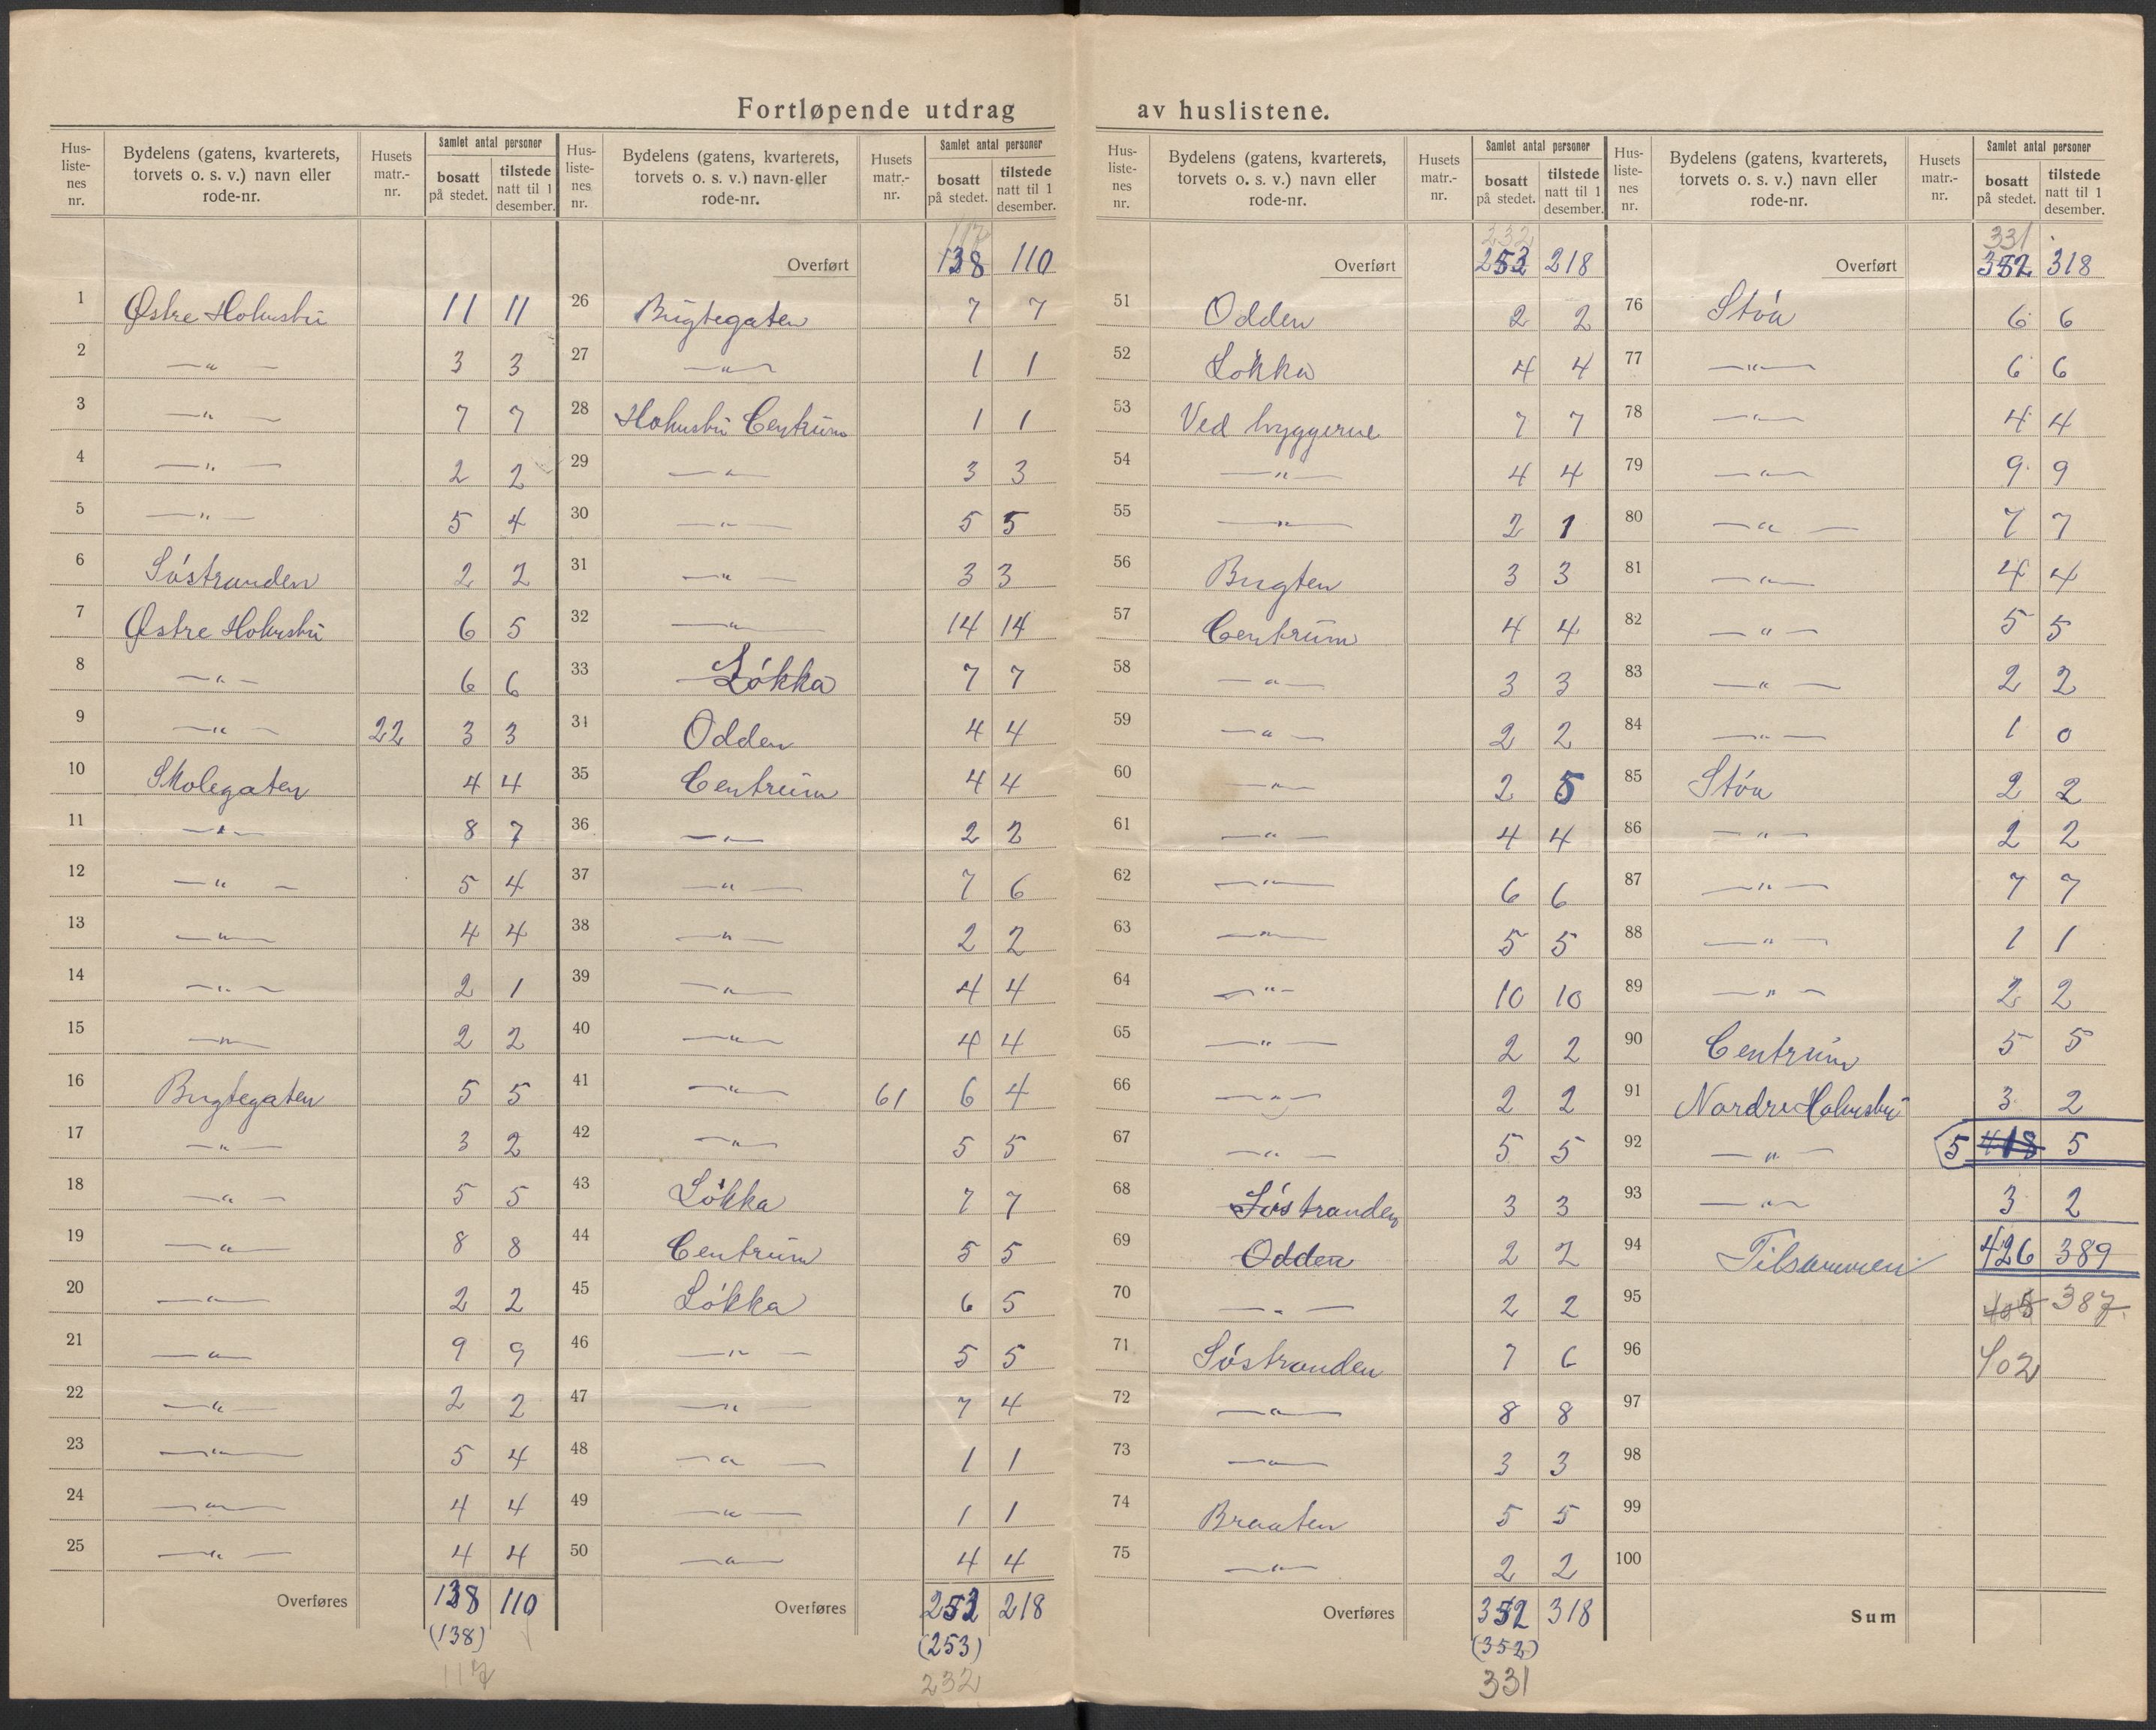 Fortløpende utdrag av huslistene.
Hus-liste-nes nr. | Bydelens (gatens, kvarterets, torvets o. s. v.) navn eller rode-nr. | Husets matr.-nr. | Samlet antal personer | bosatt på stedet. | tilstede natt til 1 desember.
1 Østre Holmsbu 11 11
2 —"— 3 3
3 —"— 7 7
4 —"— 2 2
5 —"— 5 4
6 Söstranden 2 2
7 Østre Holmsbu 6 5
8 —"— 6 6
9 —"— 22 3 3
10 Skolegaten 4 4
11 —"— 8 7
12 —"— 5 4
13 —"— 4 4
14 —"— 2 1
15 —"— 2 2
16 Bugtegaten 5 5
17 —"— 3 2
18 —"— 5 5
19 —"— 8 8
20 —"— 2 2
21 —"— 9 9
22 —"— 2 2
23 —"— 5 4
24 —"— 4 4
25 —"— 4 4
Overføres 138 110
(138)
117
Hus-liste-nes nr. | Bydelens (gatens, kvarterets, torvets o. s. v.) navn eller rode-nr. | Husets matr.-nr. | Samlet antal personer | bosatt på stedet. | tilstede natt til 1 desember.
117
Overført 138 110
26 Bugtegaten 7 7
27 —"— 1 1
28 Holmsbu Centrum 1 1
29 —"— 3 3
30 —"— 5 5
31 —"— 3 3
32 —"— 14 14
33 Løkka 7 7
34 Odden 4 4
35 Centrum 4 4
36 —"— 2 2
37 —"— 7 6
38 —"— 2 2
39 —"— 4 4
40 —"— 4 4
41 —"— 61 6 4
42 —"— 5 5
43 Løkka 7 7
44 Centrum 5 5
45 Løkka 6 5
46 —"— 5 5
47 —"— 7 4
48 —"— 1 1
49 —"— 1 1
50 —"— 4 4
Overføres 253 218
(253)
232
Hus-liste-nes nr. | Bydelens (gatens, kvarterets, torvets o. s. v.) navn eller rode-nr. | Husets matr.-nr. | Samlet antal personer | bosatt på stedet. | tilstede natt til 1 desember.
232
Overført 253 218
51 Odden 2 2
52 Løkka 4 4
53 Ved bryggerne 7 7
54 —"— 4 4
55 —"— 2 1
56 Bugten 3 3
57 Centrum 4 4
58 —"— 3 3
59 —"— 2 2
60 —"— 2 5
61 —"— 4 4
62 —"— 6 6
63 —"— 5 5
64 —"— 10 10
65 —"— 2 2
66 —"— 2 2
67 —"— 5 5
68 Söstranden 3 3
69 Odden 2 2
70 —"— 2 2
71 Söstranden 7 6
72 —"— 8 8
73 —"— 3 3
74 Braaten 5 5
75 —"— 2 2
Overføres 352 318
(352)
331
Hus-liste-nes nr. | Bydelens (gatens, kvarterets, torvets o. s. v.) navn eller rode-nr. | Husets matr.-nr. | Samlet antal personer | bosatt på stedet. | tilstede natt til 1 desember.
331
Overført 352 318
76 Støa 6 6
77 —"— 6 6
78 —"— 4 4
79 —"— 9 9
80 —"— 7 7
81 —"— 4 4
82 —"— 5 5
83 —"— 2 2
84 —"— 1 0
85 Støa 2 2
86 —"— 2 2
87 —"— 7 7
88 —"— 1 1
89 —"— 2 2
90 Centrum 5 5
91 Nordre Holmsbu 3 2
92 —"— 5 418 5
93 —"— 3 2
94 Tilsammen 426 389
95 405 387
96 402
97
98
99
100
Sum